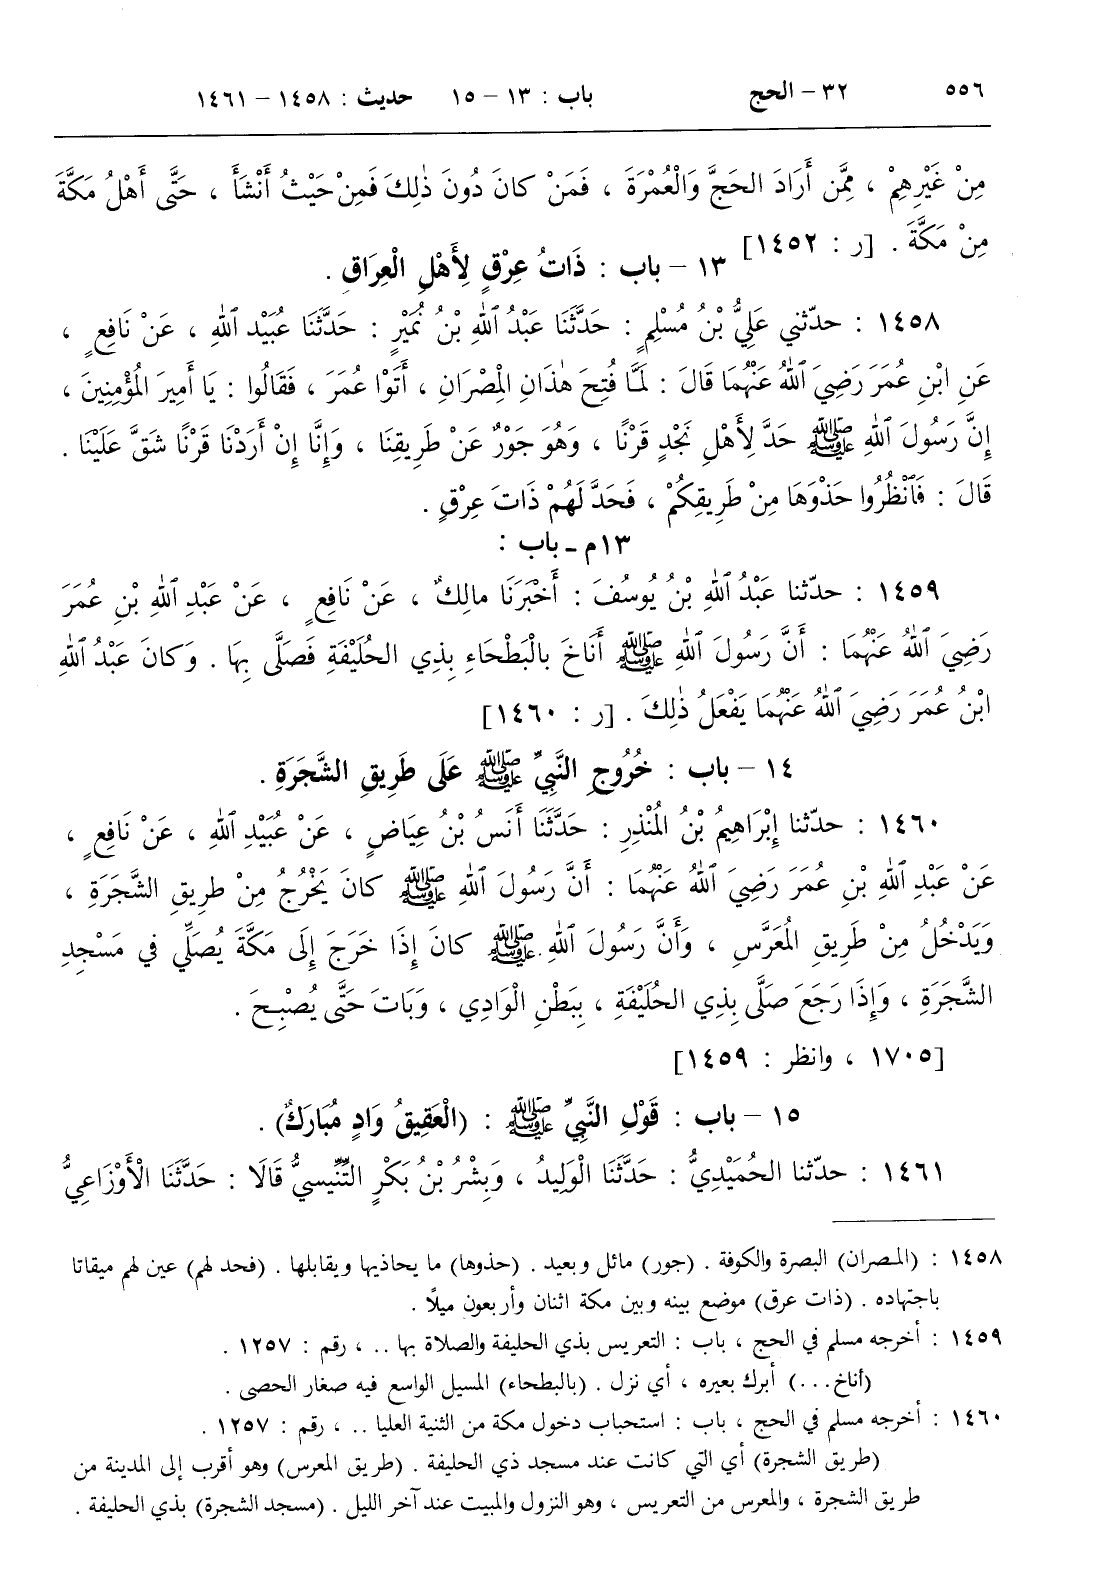 ٥٥٦ ٣٢ – الحج باب : ١٣ – ١٥ حديث : ١٤٥٨ – ١٤٦١
مِنْ غَيْرِهِمْ ، مِمَّن أَرَادَ الحَجَّ وَالْعُمْرَةَ ، فَمَنْ كانَ دُونَ ذٰلِكَ فَمِنْ حَيْثُ أَنْشَأَ ، حَتَّى أَهْلُ مَكَّةَ
مِنْ مَكَّةَ . [ر : ١٤٥٢]
١٣ – باب : ذَاتُ عِرْقٍ لِأَهْلِ الْعِرَاقِ .
١٤٥٨ : حدّثني عَلِيُّ بْنُ مُسْلِمٍ : حَدَّثَنَا عَبْدُ اللهِ بْنُ نُمَيْرٍ : حَدَّثَنَا عُبَيْدُ اللهِ ، عَنْ نَافِعٍ ،
عَنِ ابْنِ عُمَرَ رَضِيَ اللهُ عَنْهُمَا قَالَ : لَمَّا فُتِحَ هٰذَانِ الْمِصْرَانِ ، أَتَوْا عُمَرَ ، فَقَالُوا : يَا أَمِيرَ الْمُؤْمِنِينَ ،
إِنَّ رَسُولَ اللهِ ﷺ حَدَّ لِأَهْلِ نَجْدٍ قَرْنًا ، وَهُوَ جَوْرٌ عَنْ طَرِيقِنَا ، وَإِنَّا إِنْ أَرَدْنَا قَرْنًا شَقَّ عَلَيْنَا .
قَالَ : فَٱنْظُرُوا حَذْوَهَا مِنْ طَرِيقِكُمْ ، فَحَدَّ لَهُمْ ذَاتَ عِرْقٍ .
١٣م – باب :
١٤٥٩ : حدّثنا عَبْدُ اللهِ بْنُ يُوسُفَ : أَخْبَرَنَا مالِكٌ ، عَنْ نَافِعٍ ، عَنْ عَبْدِ اللهِ بْنِ عُمَرَ
رَضِيَ اللهُ عَنْهُمَا : أَنَّ رَسُولَ اللهِ ﷺ أَنَاخَ بالْبَطْحَاءِ بِذِي الحُلَيْفَةِ فَصَلَّى بِهَا . وَكانَ عَبْدُ اللهِ
ابْنُ عُمَرَ رَضِيَ اللهُ عَنْهُمَا يَفْعَلُ ذٰلِكَ . [ر : ١٤٦٠]
١٤ – باب : خُرُوجِ النَّبِيِّ ﷺ عَلَى طَرِيقِ الشَّجَرَةِ .
١٤٦٠ : حدّثنا إِبْرَاهِيمُ بْنُ المُنْذِرِ : حَدَّثَنَا أَنَسُ بْنُ عِيَاضٍ ، عَنْ عُبَيْدِ اللهِ ، عَنْ نَافِعٍ ،
عَنْ عَبْدِ اللهِ بْنِ عُمَرَ رَضِيَ اللهُ عَنْهُمَا : أَنَّ رَسُولَ اللهِ ﷺ كانَ يَخْرُجُ مِنْ طَرِيقِ الشَّجَرَةِ ،
وَيَدْخُلُ مِنْ طَرِيقِ المُعَرَّسِ ، وَأَنَّ رَسُولَ اللهِ ﷺ كانَ إِذَا خَرَجَ إِلَى مَكَّةَ يُصَلِّي في مَسْجِدِ
الشَّجَرَةِ ، وَإِذَا رَجَعَ صَلَّى بِذِي الحُلَيْفَةِ ، بِبَطْنِ الْوَادِي ، وَبَاتَ حَتَّى يُصْبِحَ .
[١٧٠٥ ، وانظر : ١٤٥٩]
١٥ – باب : قَوْلِ النَّبِيِّ ﷺ : (الْعَقِيقُ وَادٍ مُبَارَكٌ) .
١٤٦١ : حدّثنا الحُمَيْدِيُّ : حَدَّثَنَا الْوَلِيدُ ، وَبِشْرُ بْنُ بَكْرٍ التِّنِّيسِيُّ قَالَا : حَدَّثَنَا الْأَوْزَاعِيُّ
١٤٥٨ : (المصران) البصرة والكوفة . (جور) مائل وبعيد . (حذوها) ما يحاذيها ويقابلها . (فحد لهم) عين لهم ميقاتا
باجتهاده . (ذات عرق) موضع بينه وبين مكة اثنان وأربعون ميلًا .
١٤٥٩ : أخرجه مسلم في الحج ، باب : التعريس بذي الحليفة والصلاة بها .. ، رقم : ١٢٥٧ .
(أناخ...) أبرك بعيره ، أي نزل . (بالبطحاء) المسيل الواسع فيه صغار الحصى .
١٤٦٠ : أخرجه مسلم في الحج ، باب : استحباب دخول مكة من الثنية العليا .. ، رقم : ١٢٥٧ .
(طريق الشجرة) أي التي كانت عند مسجد ذي الحليفة . (طريق المعرس) وهو أقرب إلى المدينة من
طريق الشجرة ، والمعرس من التعريس ، وهو النزول والمبيت عند آخر الليل . (مسجد الشجرة) بذي الحليفة .